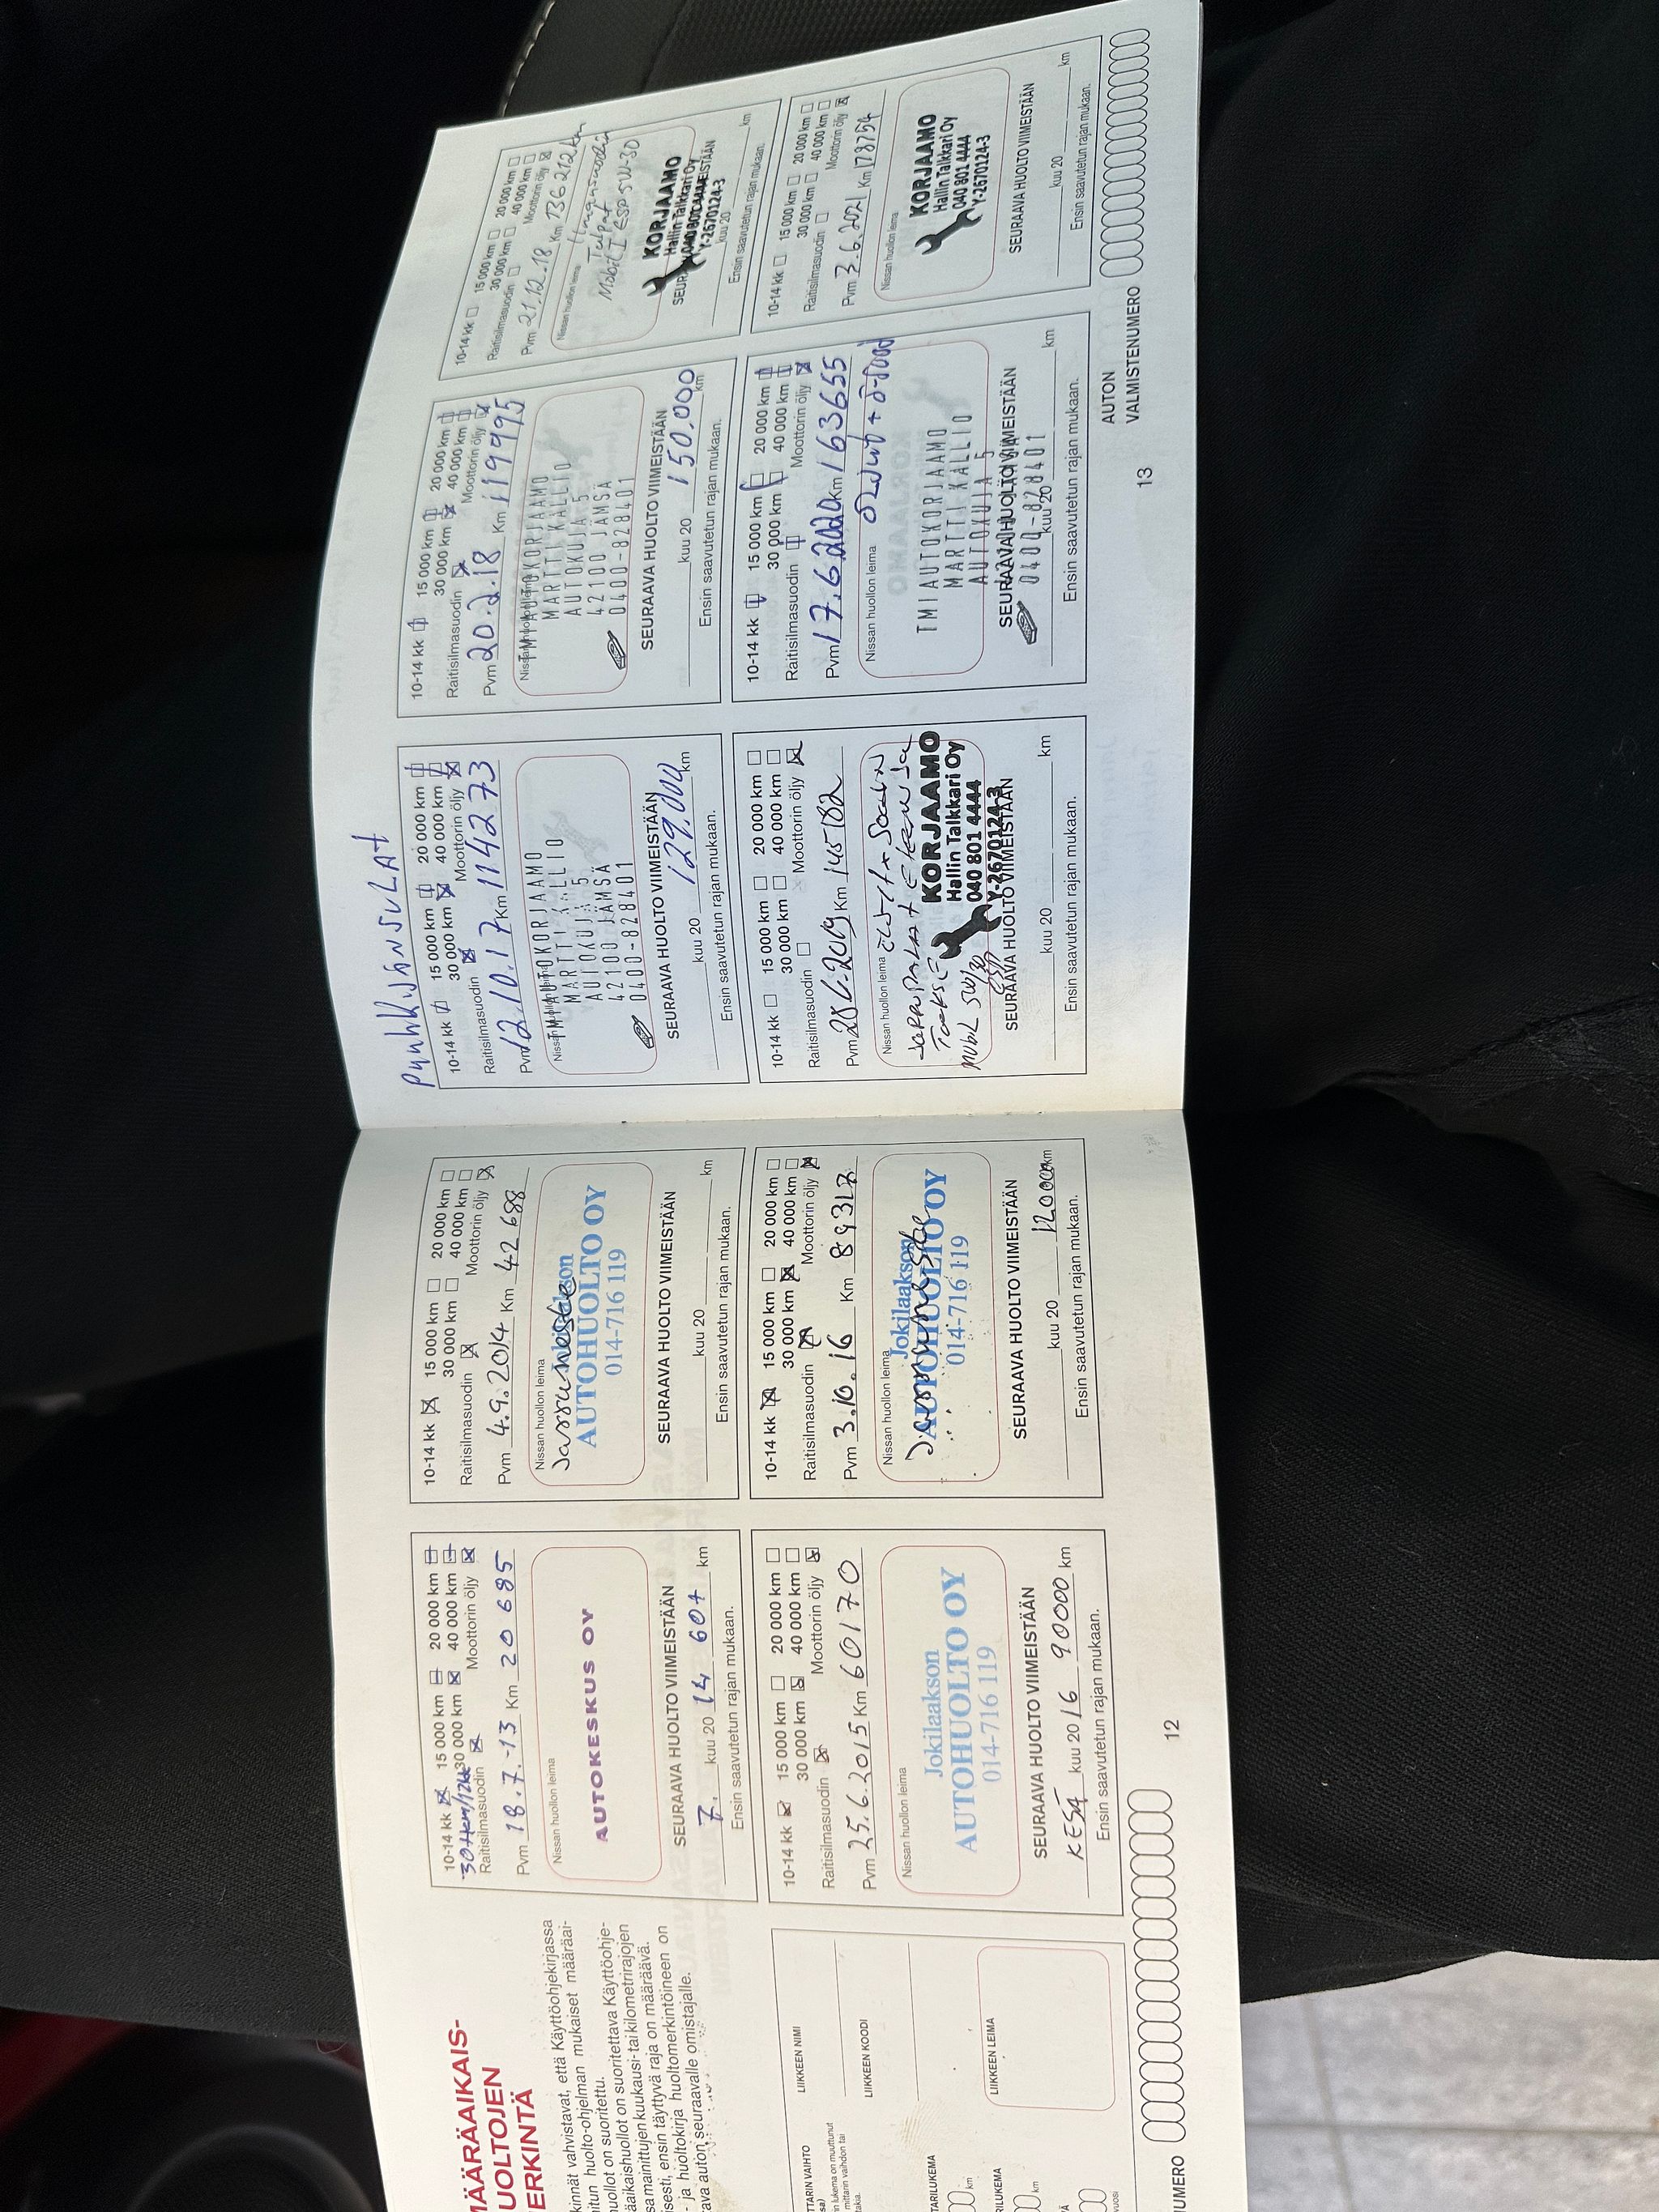 MÄÄRÄAIKAIS-
HUOLTOJEN
MERKINTÄ
kinnät vahvistavat, että Käyttöohjekirjassa
itun huolto-ohjelman mukaiset määräai-
uollot on suoritettu.
äaikaishuollot on suoritettava Käyttöohje-
sa mainittujen kuukausi- tai kilometrirajojen
isesti, ensin täyttyvä raja on määräävä.
- ja huoltokirja huoltomerkintöineen on
ava auton seuraavalle omistajalle.
TTARIN VAIHTO
LIIKKEEN NIMI
LIIKKEEN KOODI
LIIKKEEN LEIMA
TARILUKEMA
km
RILUKEMA
km
NUMERO
10-14 kk 15 000 km 20 000 km
30 000 km 40 000 km
Raitisilmasuodin Moottorin öljy
Pvm 18.7.-13 Km 20 695
Nissan huollon leima
AUTOKESKUS OY
SEURAAVA HUOLTO VIIMEISTÄÄN
7. kuu 20 14 60+ km
Ensin saavutetun rajan mukaan.
10-14 kk 15 000 km 20 000 km
30 000 km 40 000 km
Raitisilmasuodin Moottorin öljy
Pvm 4.9.2014 Km 42 688
Nissan huollon leima
Jarruneste
AUTOHUOLTO OY
014-716 119
SEURAAVA HUOLTO VIIMEISTÄÄN
kuu 20 km
Ensin saavutetun rajan mukaan.
10-14 kk 15 000 km 20 000 km
30 000 km 40 000 km
Raitisilmasuodin Moottorin öljy
Pvm 25.6.2015 Km 60170
Nissan huollon leima
Jokilaakson
AUTOHUOLTO OY
014-716 119
SEURAAVA HUOLTO VIIMEISTÄÄN
KESÄ kuu 20 16 90000 km
Ensin saavutetun rajan mukaan.
10-14 kk 15 000 km 20 000 km
30 000 km 40 000 km
Raitisilmasuodin Moottorin öljy
Pvm 3.10.16 Km
Nissan huollon leima
Jokilaakson
Jarruneste
AUTOHUOLTO OY
014-716 119
SEURAAVA HUOLTO VIIMEISTÄÄN
kuu 20 120000 km
Ensin saavutetun rajan mukaan.
12
10-14 kk 15 000 km 20 000 km
30 000 km 40 000 km
Raitisilmasuodin Moottorin öljy
Pvm 12.10.17 Km 114273
Nissan huollon leima
TMI AUTOKORJAAMO
MARTTI KALLIO
AUTOKUJA 5
42100 JÄMSÄ
0400-828401
SEURAAVA HUOLTO VIIMEISTÄÄN
kuu 20 129.000 km
Ensin saavutetun rajan mukaan.
10-14 kk 15 000 km 20 000 km
30 000 km 40 000 km
Raitisilmasuodin Moottorin öljy
Pvm 20.2.18 Km 119995
Nissan huollon leima
TMI AUTOKORJAAMO
MARTTI KALLIO
AUTOKUJA 5
42100 JÄMSÄ
0400-828401
SEURAAVA HUOLTO VIIMEISTÄÄN
kuu 20 150.000 km
Ensin saavutetun rajan mukaan.
10-14 kk 15 000 km 20 000 km
30 000 km 40 000 km
Raitisilmasuodin Moottorin öljy
Pvm 21.12.18 Km 136212km
Nissan huollon leima
Ilmansuodin
Tulpat
Mobil 1 ESP 5W-30
KORJAAMO
Hallin Talkkari Oy
040 801 4444
Y-2670124-3
kuu 20 km
Ensin saavutetun rajan mukaan.
10-14 kk 15 000 km 20 000 km
30 000 km 40 000 km
Raitisilmasuodin Moottorin öljy
Pvm Km 145182
Nissan huollon leima
KORJAAMO
Hallin Talkkari Oy
040 801 4444
Y-2670124-3
SEURAAVA HUOLTO VIIMEISTÄÄN
kuu 20 km
Ensin saavutetun rajan mukaan.
10-14 kk 15 000 km 20 000 km
30 000 km 40 000 km
Raitisilmasuodin Moottorin öljy
Pvm 17.6.2020 Km 163655
Nissan huollon leima
TMI AUTOKORJAAMO
MARTTI KALLIO
AUTOKUJA 5
SEURAAVA HUOLTO VIIMEISTÄÄN
0400-828401
kuu 20 km
Ensin saavutetun rajan mukaan.
10-14 kk 15 000 km 20 000 km
30 000 km 40 000 km
Raitisilmasuodin Moottorin öljy
Pvm 3.6.2021 Km 173754
Nissan huollon leima
KORJAAMO
Hallin Talkkari Oy
040 801 4444
Y-2670124-3
SEURAAVA HUOLTO VIIMEISTÄÄN
kuu 20 km
Ensin saavutetun rajan mukaan.
13
AUTON
VALMISTENUMERO